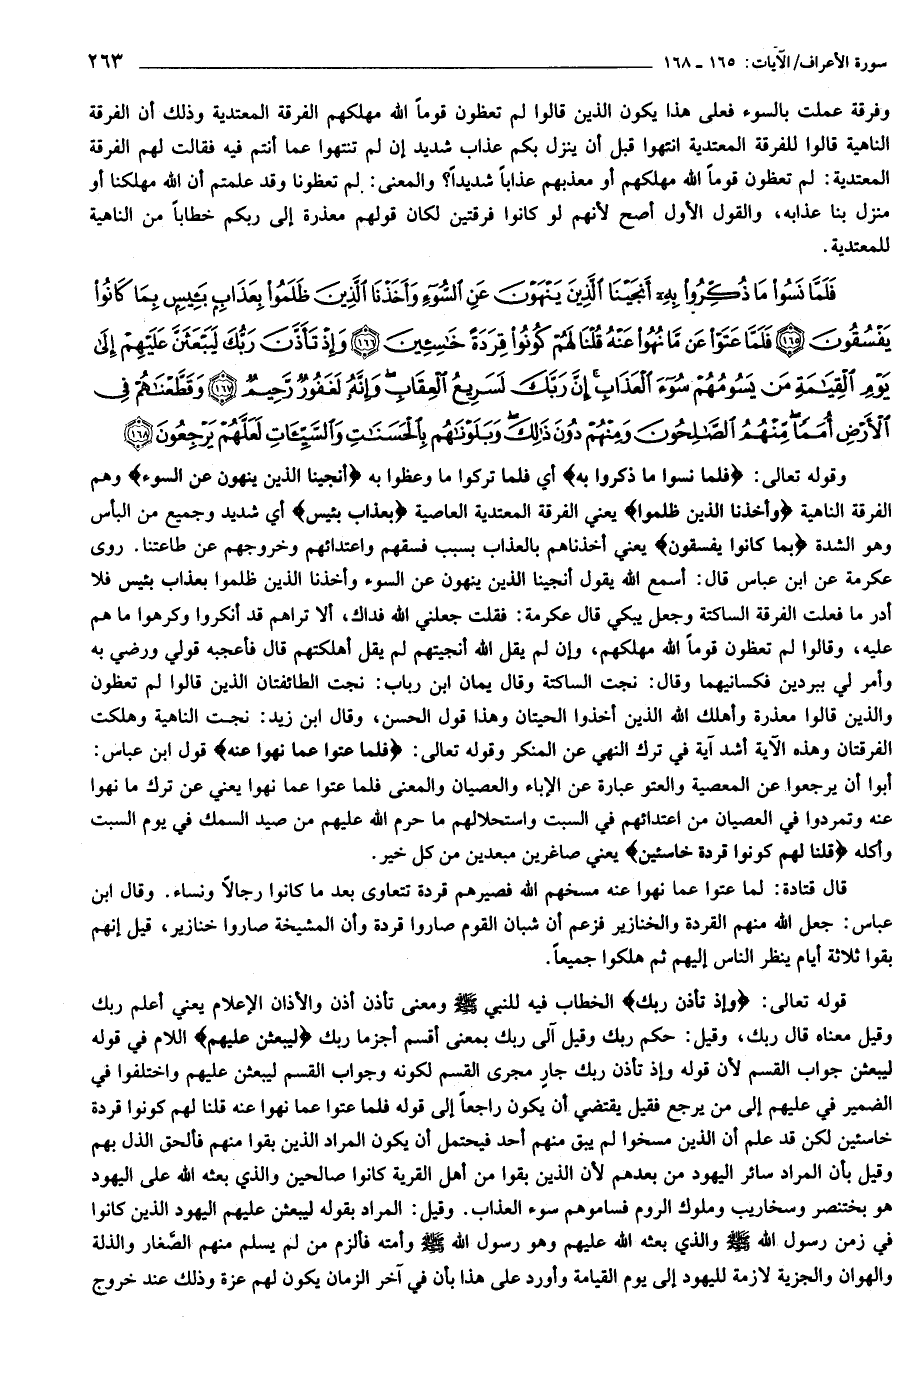 سورة الأعراف/ الآيات: ١٦٥ ـ ١٦٨ ٢٦٣
وفرقة عملت بالسوء فعلى هذا يكون الذين قالوا لم تعظون قوماً الله مهلكهم الفرقة المعتدية وذلك أن الفرقة
الناهية قالوا للفرقة المعتدية انتهوا قبل أن ينزل بكم عذاب شديد إن لم تنتهوا عما أنتم فيه فقالت لهم الفرقة
المعتدية: لم تعظون قوماً الله مهلكهم أو معذبهم عذاباً شديداً؟ والمعنى: لم تعظونا وقد علمتم أن الله مهلكنا أو
منزل بنا عذابه، والقول الأول أصح لأنهم لو كانوا فرقتين لكان قولهم معذرة إلى ربكم خطاباً من الناهية
للمعتدية.
فَلَمَّا نَسُوا مَا ذُكِّرُوا بِهِۦ أَنجَيْنَا ٱلَّذِينَ يَنْهَوْنَ عَنِ ٱلسُّوٓءِ وَأَخَذْنَا ٱلَّذِينَ ظَلَمُوا بِعَذَابٍ بَـِٔيسٍ بِمَا كَانُوا
يَفْسُقُونَ ١٦٥ فَلَمَّا عَتَوْا عَن مَّا نُهُوا عَنْهُ قُلْنَا لَهُمْ كُونُوا قِرَدَةً خَٰسِـِٔينَ ١٦٦ وَإِذْ تَأَذَّنَ رَبُّكَ لَيَبْعَثَنَّ عَلَيْهِمْ إِلَىٰ
يَوْمِ ٱلْقِيَٰمَةِ مَن يَسُومُهُمْ سُوٓءَ ٱلْعَذَابِ إِنَّ رَبَّكَ لَسَرِيعُ ٱلْعِقَابِ وَإِنَّهُۥ لَغَفُورٌ رَّحِيمٌ ١٦٧ وَقَطَّعْنَٰهُمْ فِى
ٱلْأَرْضِ أُمَمًا مِّنْهُمُ ٱلصَّٰلِحُونَ وَمِنْهُمْ دُونَ ذَٰلِكَ وَبَلَوْنَٰهُم بِٱلْحَسَنَٰتِ وَٱلسَّيِّـَٔاتِ لَعَلَّهُمْ يَرْجِعُونَ ١٦٨
وقوله تعالى: ﴿فلما نسوا ما ذكروا به﴾ أي فلما تركوا ما وعظوا به ﴿أنجينا الذين ينهون عن السوء﴾ وهم
الفرقة الناهية ﴿وأخذنا الذين ظلموا﴾ يعني الفرقة المعتدية العاصية ﴿بعذاب بئيس﴾ أي شديد وجميع من البأس
وهو الشدة ﴿بما كانوا يفسقون﴾ يعني أخذناهم بالعذاب بسبب فسقهم واعتدائهم وخروجهم عن طاعتنا. روى
عكرمة عن ابن عباس قال: أسمع الله يقول أنجينا الذين ينهون عن السوء وأخذنا الذين ظلموا بعذاب بئيس فلا
أدر ما فعلت الفرقة الساكتة وجعل يبكي قال عكرمة: فقلت جعلني الله فداك، ألا تراهم قد أنكروا وكرهوا ما هم
عليه، وقالوا لم تعظون قوماً الله مهلكهم، وإن لم يقل الله أنجيتهم لم يقل أهلكتهم قال فأعجبه قولي ورضي به
وأمر لي ببردين فكسانيهما وقال: نجت الساكتة وقال يمان ابن رباب: نجت الطائفتان الذين قالوا لم تعظون
والذين قالوا معذرة وأهلك الله الذين أخذوا الحيتان وهذا قول الحسن، وقال ابن زيد: نجت الناهية وهلكت
الفرقتان وهذه الآية أشد آية في ترك النهي عن المنكر وقوله تعالى: ﴿فلما عتوا عما نهوا عنه﴾ قول ابن عباس:
أبوا أن يرجعوا عن المعصية والعتو عبارة عن الإباء والعصيان والمعنى فلما عتوا عما نهوا يعني عن ترك ما نهوا
عنه وتمردوا في العصيان من اعتدائهم في السبت واستحلالهم ما حرم الله عليهم من صيد السمك في يوم السبت
وأكله ﴿قلنا لهم كونوا قردة خاسئين﴾ يعني صاغرين مبعدين من كل خير.
قال قتادة: لما عتوا عما نهوا عنه مسخهم الله فصيرهم قردة تتعاوى بعد ما كانوا رجالاً ونساء. وقال ابن
عباس: جعل الله منهم القردة والخنازير فزعم أن شبان القوم صاروا قردة وأن المشيخة صاروا خنازير، قيل إنهم
بقوا ثلاثة أيام ينظر الناس إليهم ثم هلكوا جميعاً.
قوله تعالى: ﴿وإذ تأذن ربك﴾ الخطاب فيه للنبي ﷺ ومعنى تأذن أذن والأذان الإعلام يعني أعلم ربك
وقيل معناه قال ربك، وقيل: حكم ربك وقيل آلى ربك بمعنى أقسم أجزما ربك ﴿ليبعثن عليهم﴾ اللام في قوله
ليبعثن جواب القسم لأن قوله وإذ تأذن ربك جارٍ مجرى القسم لكونه وجواب القسم ليبعثن عليهم واختلفوا في
الضمير في عليهم إلى من يرجع فقيل يقتضي أن يكون راجعاً إلى قوله فلما عتوا عما نهوا عنه قلنا لهم كونوا قردة
خاسئين لكن قد علم أن الذين مسخوا لم يبق منهم أحد فيحتمل أن يكون المراد الذين بقوا منهم فألحق الذل بهم
وقيل بأن المراد سائر اليهود من بعدهم لأن الذين بقوا من أهل القرية كانوا صالحين والذي بعثه الله على اليهود
هو بختنصر وسخاريب وملوك الروم فساموهم سوء العذاب. وقيل: المراد بقوله ليبعثن عليهم اليهود الذين كانوا
في زمن رسول الله ﷺ والذي بعثه الله عليهم وهو رسول الله ﷺ وأمته فألزم من لم يسلم منهم الصَّغار والذلة
والهوان والجزية لازمة لليهود إلى يوم القيامة وأورد على هذا بأن في آخر الزمان يكون لهم عزة وذلك عند خروج